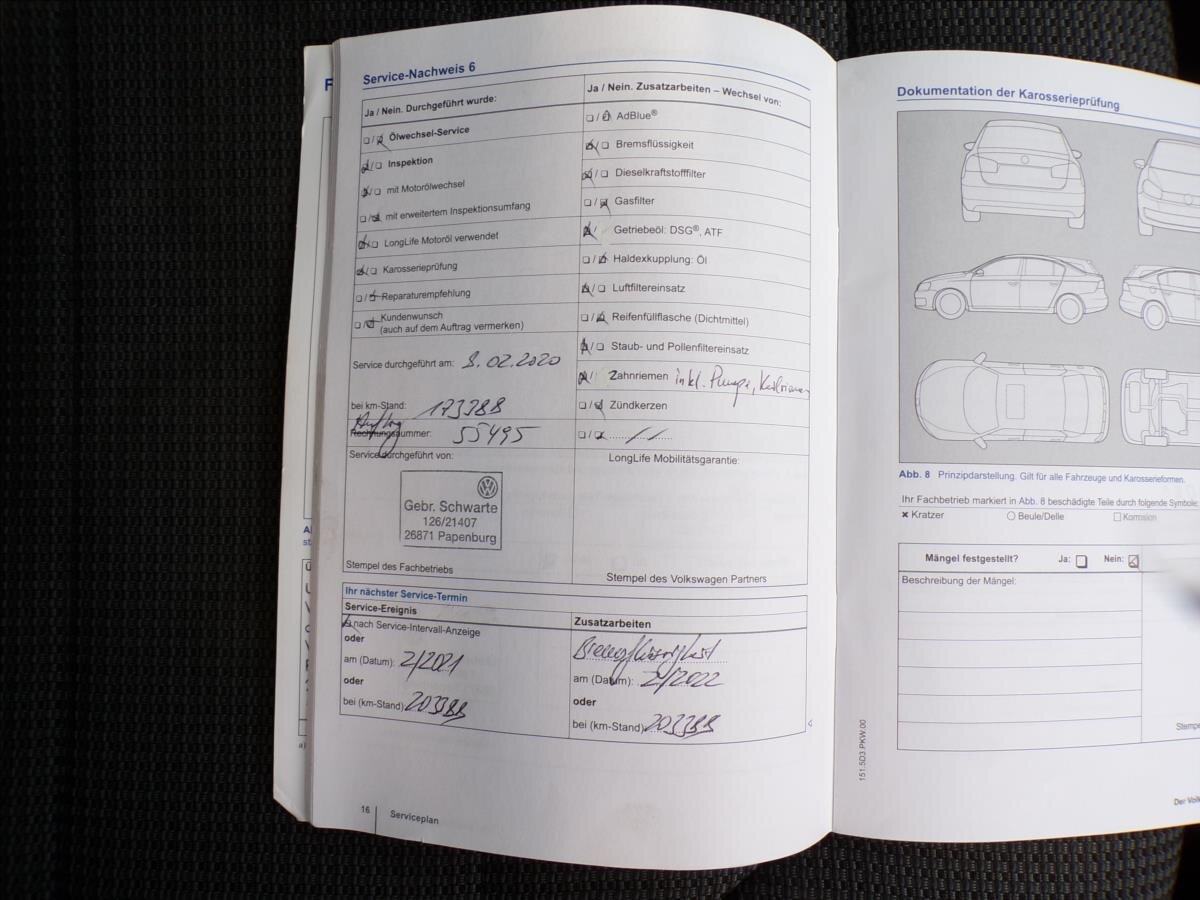 Service-Nachweis 6
Ja / Nein. Durchgeführt wurde:
❏/❏ Ölwechsel-Service
❏/❏ Inspektion
❏/❏ mit Motorölwechsel
❏/❏ mit erweitertem Inspektionsumfang
❏/❏ LongLife Motoröl verwendet
❏/❏ Karosserieprüfung
❏/❏ Reparaturempfehlung
❏/❏ Kundenwunsch
(auch auf dem Auftrag vermerken)
Service durchgeführt am: 8.02.2020
bei km-Stand: 173388
Auftrag
Rechnungsnummer: 55495
Service durchgeführt von:
Gebr. Schwarte
126/21407
26871 Papenburg
Stempel des Fachbetriebs
Ja / Nein. Zusatzarbeiten – Wechsel von:
❏/❏ AdBlue®
❏/❏ Bremsflüssigkeit
❏/❏ Dieselkraftstofffilter
❏/❏ Gasfilter
❏/ Getriebeöl: DSG®, ATF
❏/❏ Haldexkupplung: Öl
❏/❏ Luftfiltereinsatz
❏/❏ Reifenfüllflasche (Dichtmittel)
❏/❏ Staub- und Pollenfiltereinsatz
❏/ Zahnriemen inkl. Pumpe, Keilriemen
❏/❏ Zündkerzen
❏/❏ ..............
LongLife Mobilitätsgarantie:
Stempel des Volkswagen Partners
Ihr nächster Service-Termin
Service-Ereignis
❏ nach Service-Intervall-Anzeige
oder
am (Datum): 2/2021
oder
bei (km-Stand): 203388
Zusatzarbeiten
Bremsflüssigkeit
am (Datum): 2/2022
oder
bei (km-Stand) 203388
16 Serviceplan
Dokumentation der Karosserieprüfung
Abb. 8 Prinzipdarstellung. Gilt für alle Fahrzeuge und Karosserieformen.
Ihr Fachbetrieb markiert in Abb. 8 beschädigte Teile durch folgende Symbole:
✖ Kratzer ○ Beule/Delle ❏ Korrosion
Mängel festgestellt? Ja: ❏ Nein: ☒
Beschreibung der Mängel:
151.5D3.PKW.00